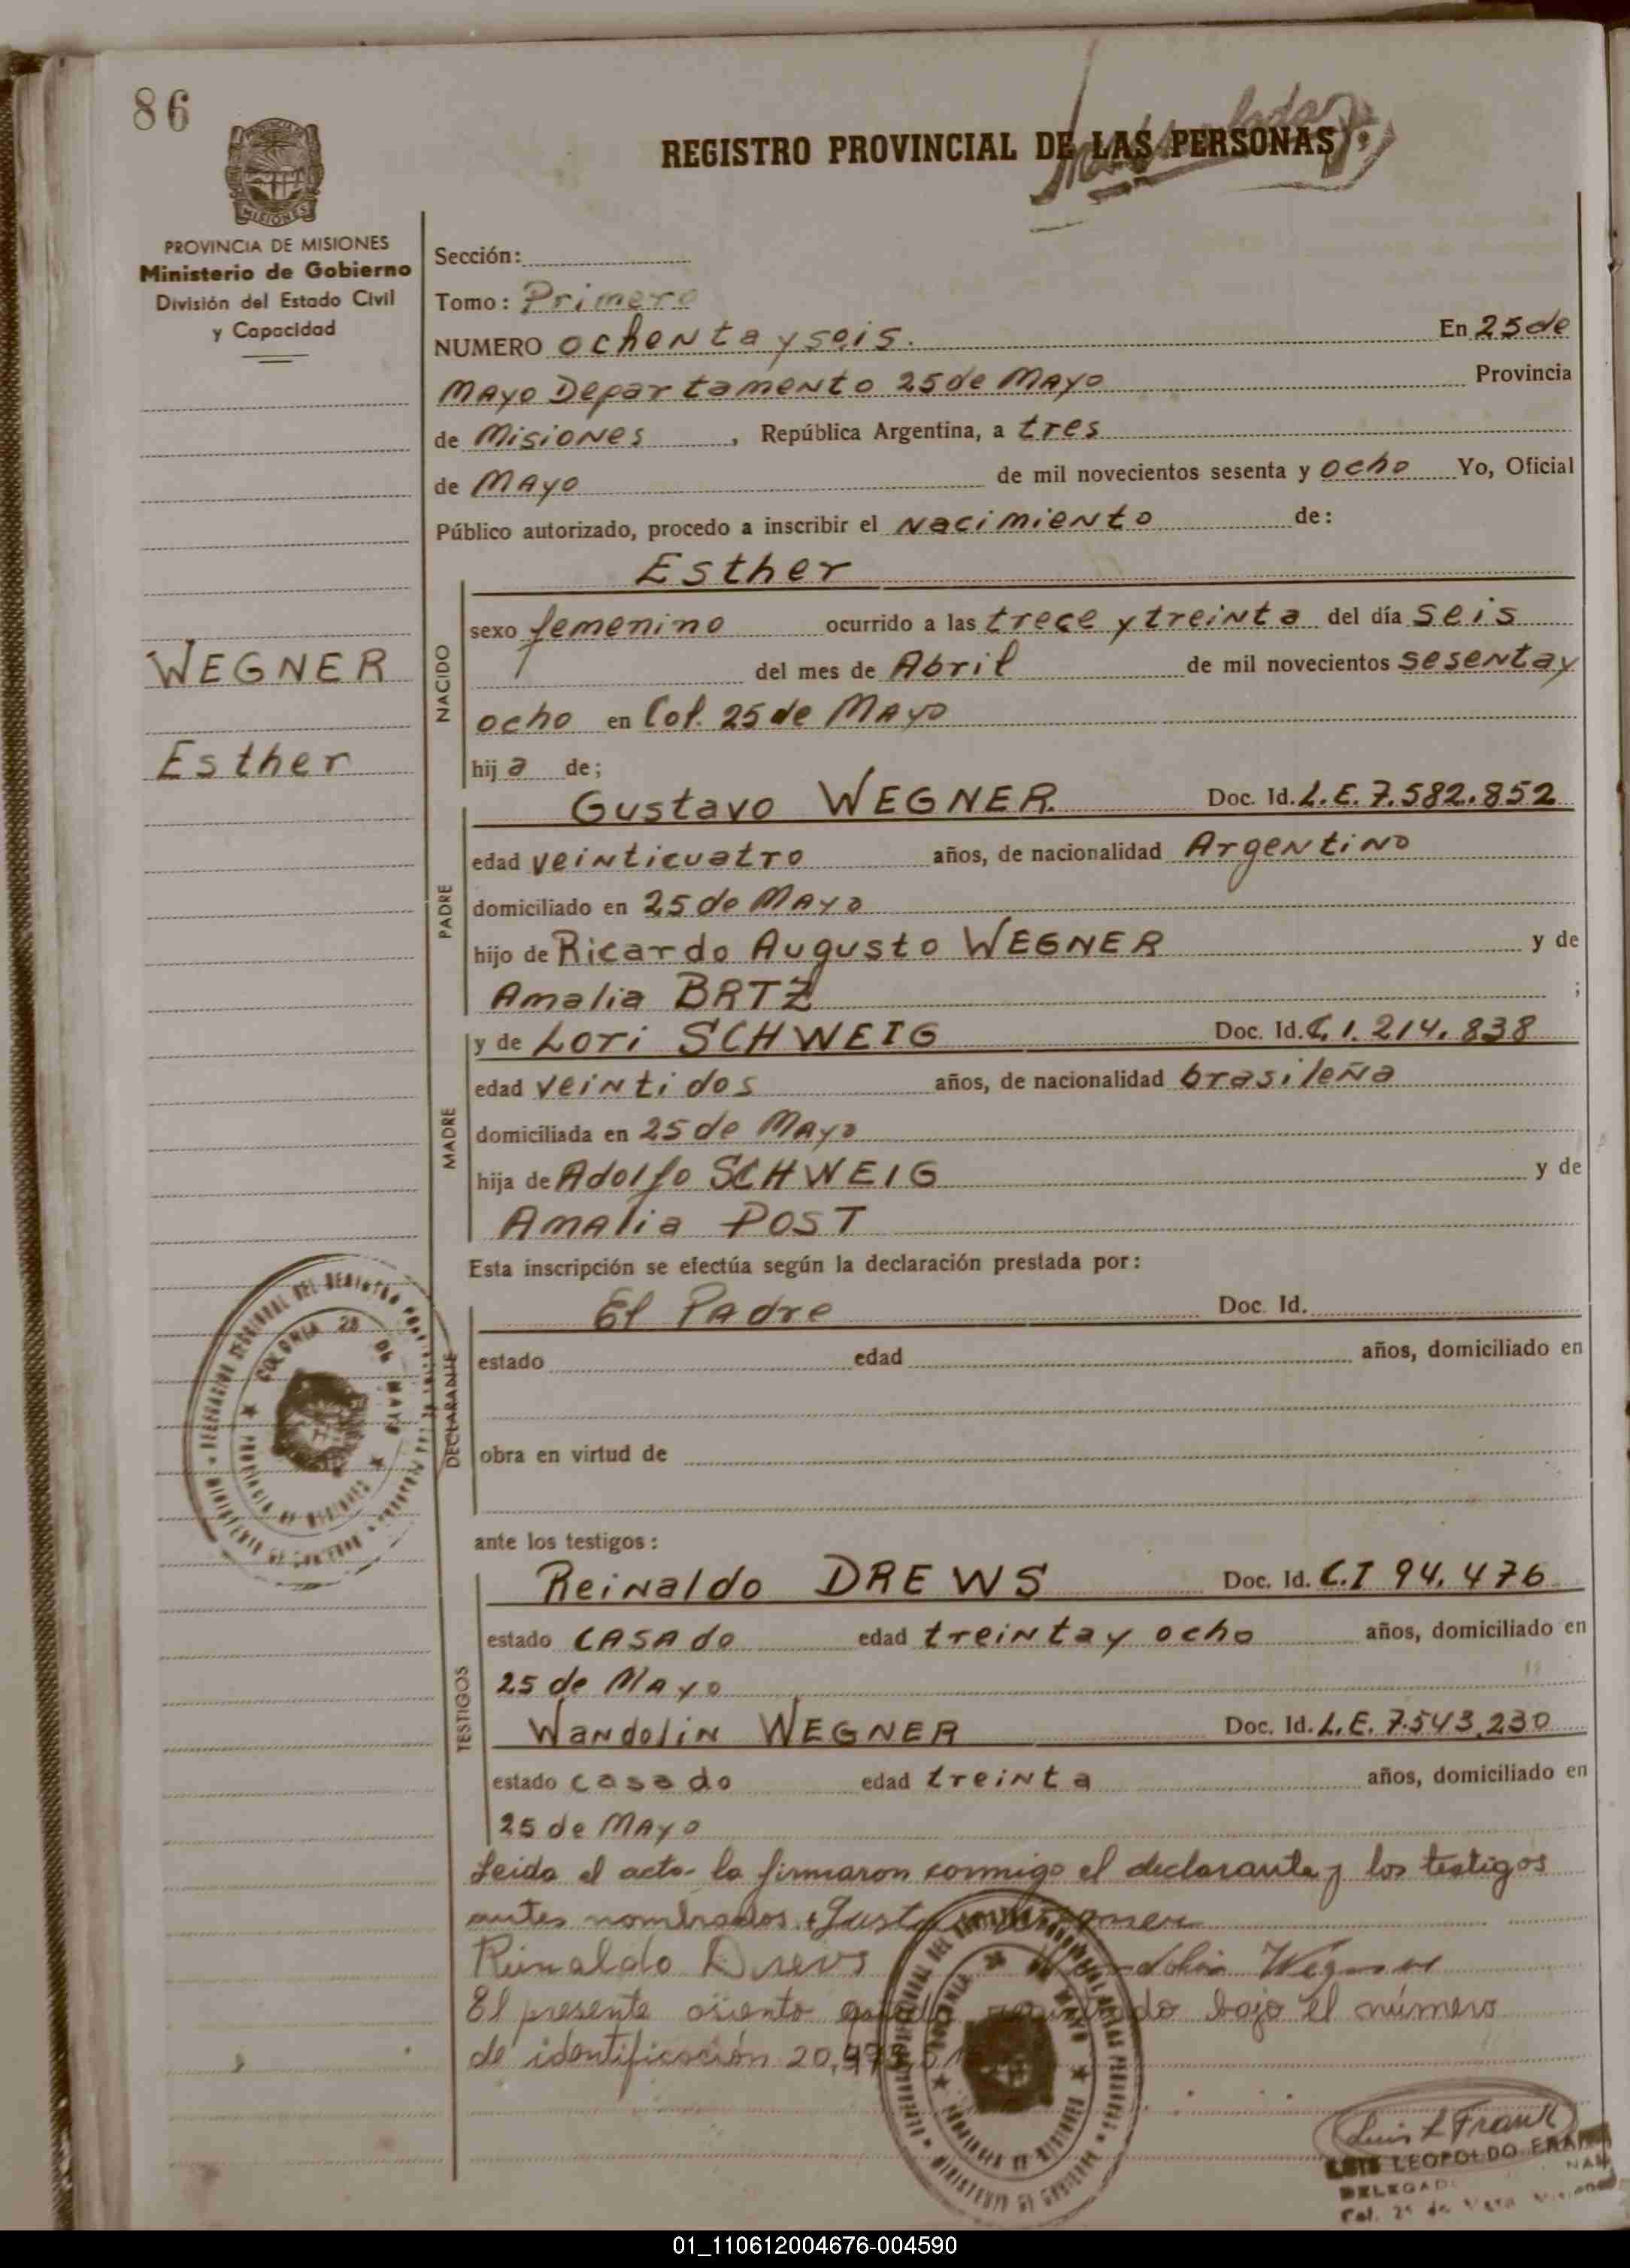 86
REGISTRO PROVINCIAL DE LAS PERSONAS
MISIONES
PROVINCIA DE MISIONES
Ministerio de Gobierno
División del Estado Civil
y Capacidad
Sección:
Tomo: Primero
NUMERO ochenta y seis. En 25 de
Mayo Departamento 25 de Mayo Provincia
de Misiones, República Argentina, a tres
de Mayo de mil novecientos sesenta y ocho Yo, Oficial
Público autorizado, procedo a inscribir el nacimiento de:
WEGNER
Esther
NACIDO
Esther
sexo femenino ocurrido a las trece y treinta del día seis
del mes de Abril de mil novecientos sesenta y
ocho en Col. 25 de Mayo
hija de;
PADRE
Gustavo WEGNER. Doc. Id. L.E. 7.582.852
edad veinticuatro años, de nacionalidad Argentino
domiciliado en 25 de Mayo
hijo de Ricardo Augusto WEGNER y de
Amalia BRTZ ;
MADRE
y de Lori SCHWEIG Doc. Id. C.I. 214.838
edad veintidos años, de nacionalidad brasileña
domiciliada en 25 de Mayo
hija de Adolfo SCHWEIG y de
Amalia POST
Esta inscripción se efectúa según la declaración prestada por:
DECLARANTE
El Padre Doc. Id.
estado edad años, domiciliado en
obra en virtud de
COLONIA 25 DE MAYO
PROVINCIA DE MISIONES
MINISTERIO DE GOBIERNO
ante los testigos:
TESTIGOS
Reinaldo DREWS Doc. Id. C.I 94.476
estado casado edad treinta y ocho años, domiciliado en
25 de Mayo
Wandolin WEGNER Doc. Id. L.E. 7.543.230
estado casado edad treinta años, domiciliado en
25 de Mayo
Leida el acta la firmaron conmigo el declarante y los testigos
antes nombrados.
Reinaldo Drews Wegner
El presente asiento bajo el número
de identificación 20,975.
Luis L Frank
LUIS LEOPOLDO FRANK
01_110612004676-004590